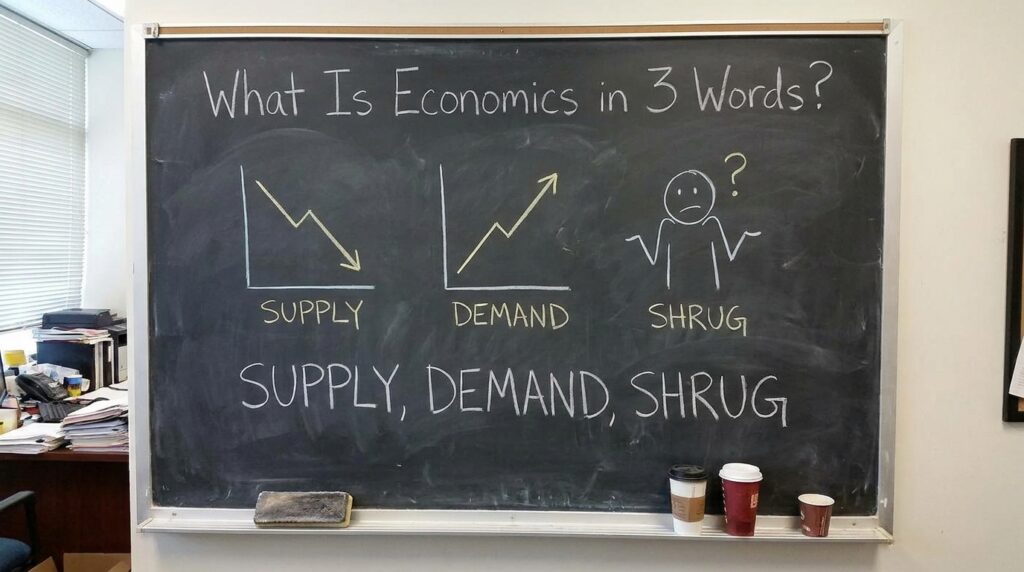 What Is Economics in 3 Words?
?
SUPPLY DEMAND SHRUG
SUPPLY, DEMAND, SHRUG